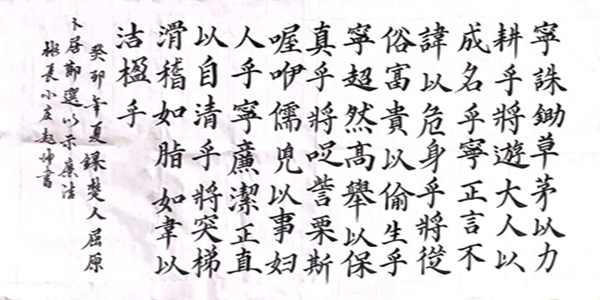 寧誅鋤草茅以力
耕乎將遊大人以
成名乎寧正言不
諱以危身乎將從
俗富貴以偷生乎
寧超然高舉以保
真乎將哫訾栗斯
喔咿儒兒以事婦
人乎寧廉潔正直
以自清乎將突梯
滑稽如脂如韋以
洁楹乎
癸卯年夏錄楚人屈原
卜居節選以示廉洁
書